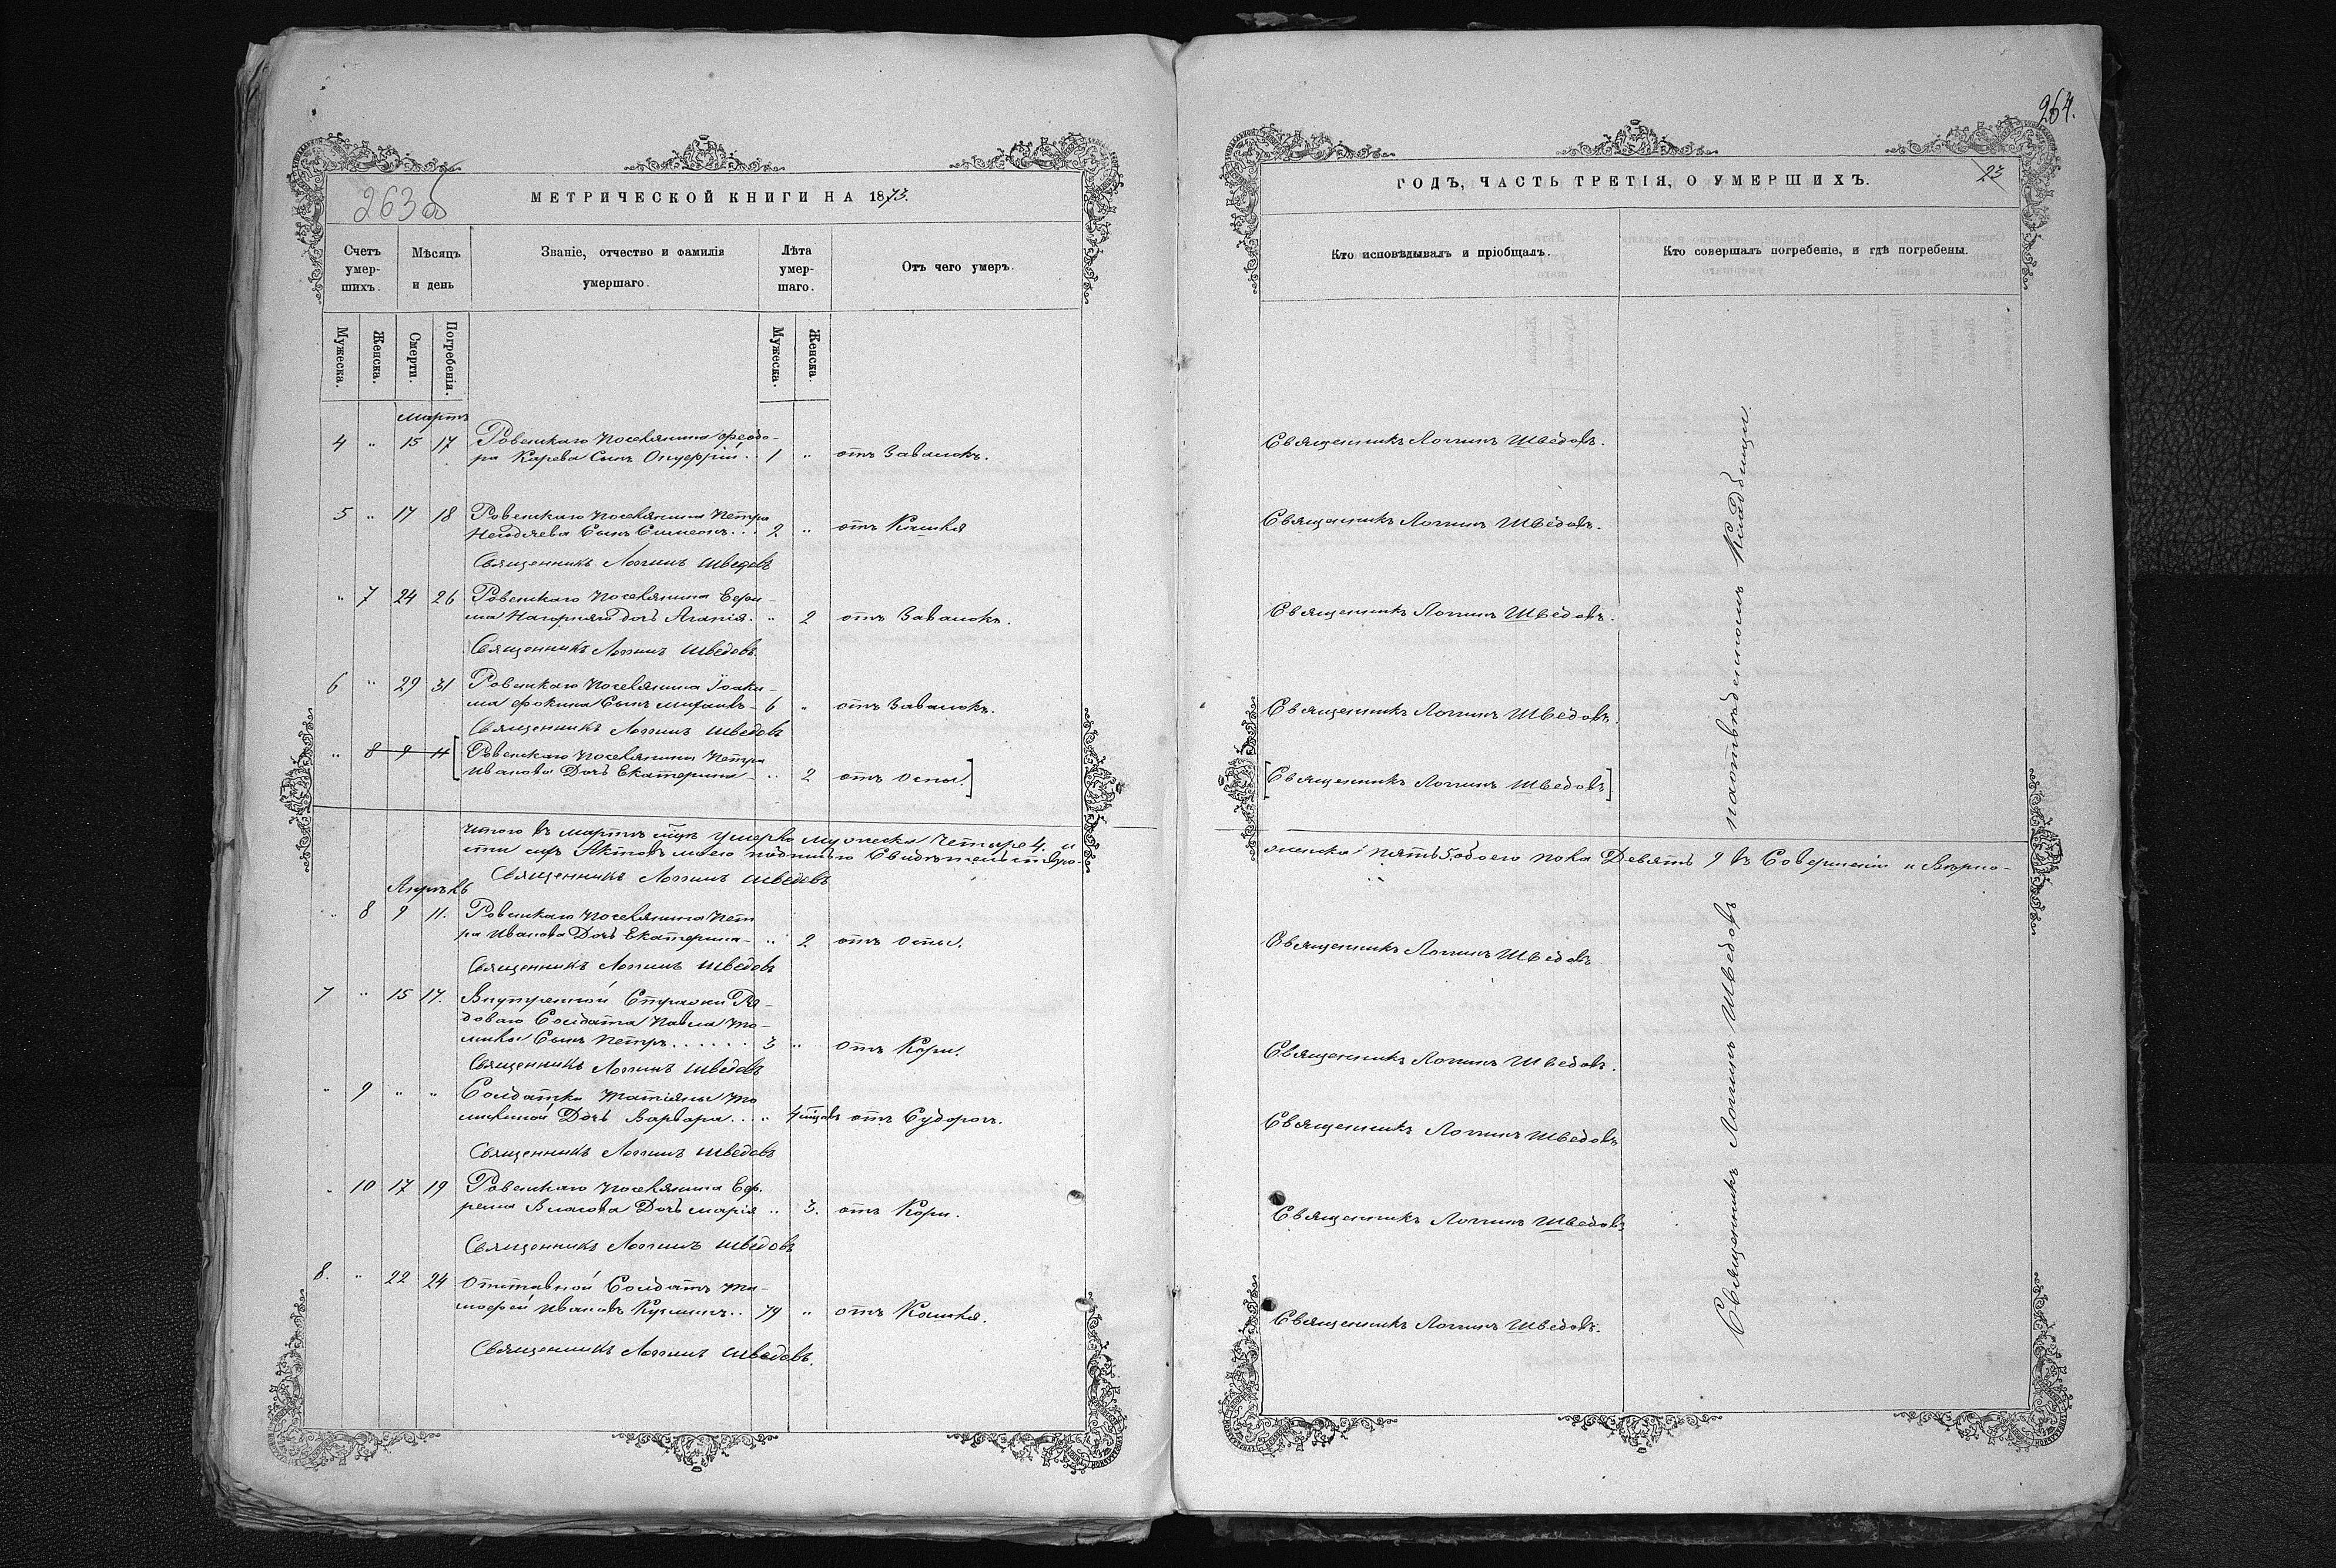 263 об
МЕТРИЧЕСКОЙ КНИГИ НА 1873.
Счетъ умер-шихъ.
Мѣсяцъ и день
Званіе, отчество и фамилія умершаго.
Лѣта умер-шаго.
Отъ чего умеръ.
Мужеска.
Женска.
Смерти.
Погребенія.
Мужеска.
Женска.
Мартъ
4 „ 15 17 Ровенскаго поселянина Ѳеодо-
ра Карева Сынъ Онуфрій . . 1 „ отъ Завалокъ.
5 „ 17 18 Ровенскаго поселянина Петра
Сынъ Симеонъ . . . 2 „ отъ Кашля
Священникъ Логинъ Шведовъ
„ 7 24 26 Ровенскаго поселянина Ефи-
ма Нагорняго дочь Агапія. „ 2 отъ Завалокъ.
Священникъ Логинъ Шведовъ
6 „ 29 31 Ровенскаго поселянина Іоаки-
ма Фокина Сынъ Михаилъ - 6 „ отъ Завалокъ.
Священникъ Логинъ Шведовъ
„ 8 9 11 [Ровенскаго поселянина Петра
Иванова Дочь Екатерина - „ 2 отъ Оспы.]
Итого въ мартѣ м̃цѣ умерло мужеска четыре 4. и
сти сихъ Актовъ моею подписью Свидѣтельствую.
Священникъ Логинъ Шведовъ
Апрѣль
„ 8 9 11. Ровенскаго поселянина Пет
ра Иванова Дочь Екатерина - „ 2 отъ Оспы.
Священникъ Логинъ Шведовъ
7 „ 15 17. Внутренной Стражи Ря-
доваго Солдата Павла То-
Сынъ Петръ . . . . . . 3 „ отъ Кори.
Священникъ Логинъ Шведовъ
„ 9 „ „ Солдатки Татіяны То
Дочь Варвара . . . „ 4 отъ Судорог.
Священникъ Логинъ Шведовъ
„ 10 17 19 Ровенскаго поселянина Еф-
рема Власова Дочь Марія „ 3. отъ Кори.
Священникъ Логинъ Шведовъ
8. „ 22 24 Отставной Солдатъ Ти-
мофей Ивановъ Кузминъ . . 79 „ отъ Кашля.
Священникъ Логинъ Шведовъ.
264.
23
ГОДЪ, ЧАСТЬ ТРЕТІЯ, О УМЕРШИХЪ.
Кто исповѣдывалъ и пріобщалъ.
Кто совершалъ погребеніе, и гдѣ погребены.
Священникъ Логинъ Шведовъ.
Священникъ Логинъ Шведовъ.
Священникъ Логинъ Шведовъ.
Священникъ Логинъ Шведовъ.
[Священникъ Логинъ Шведовъ]
женска пять 5, обоего пола Девять 9 въ Совершеніи и Вѣрно-
Священникъ Логинъ Шведовъ
Священникъ Логинъ Шведовъ.
Священникъ Логинъ Шведовъ
Священникъ Логинъ Шведовъ
Священникъ Логинъ Шведовъ.
Священникъ Логинъ Шведовъ на отведенномъ Кладбищи.